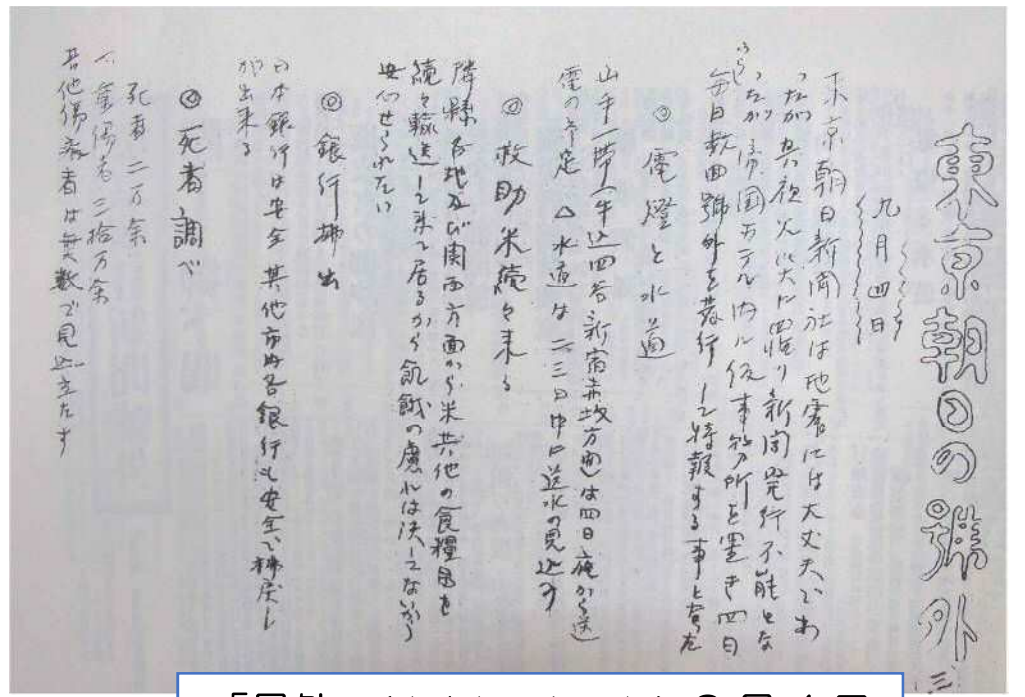 東京朝日の號外
(三)
九月四日
東京朝日新聞社は地震には大丈夫であ
つたが其夜火災に罹り新聞発行不能とな
つたが帝国ホテル内ル仮事務所を置き四日
毎日数回號外を発行して特報する事となた
◎ 電燈と水道
山手一帯(牛込四谷新宿赤坂方面)は四日夜から送
電の予定 △水道は二三日中に送水の見込み
◎ 救助米続々来る
隣縣各地及び関西方面から米其他の食糧品を
続々輸送して来て居るから飢餓の慮れは決してないから
安心せられたい
◎ 銀行拂出
日本銀行は安全 其他市内各銀行も安全で拂戻し
が出来る
◎ 死者調べ
死者 二万余
重傷者 三拾万余
其他傷病者は無数で見込立たず